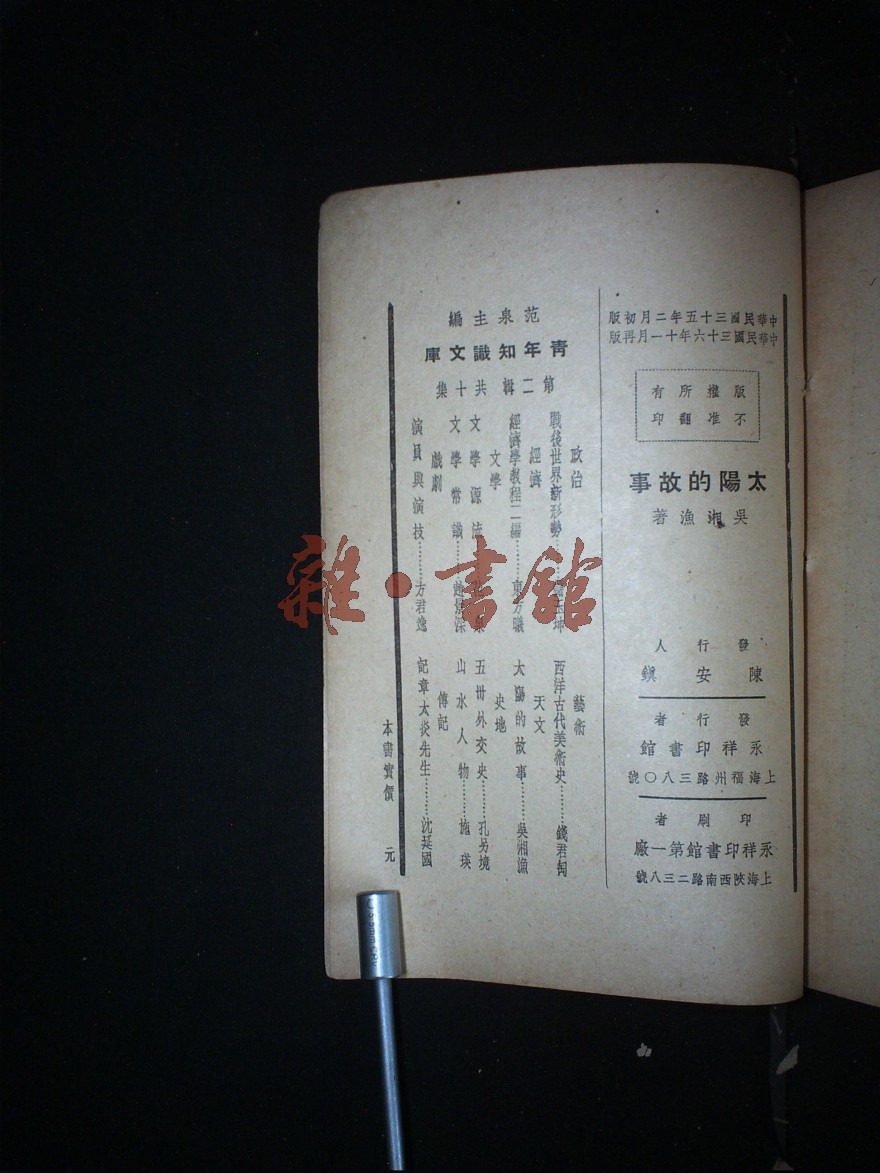 中華民國三十五年二月初版
中華民國三十六年十一月再版
版權所有
不准翻印
太陽的故事
吳湘漁著
發行人
陳安鎮
發行者
永祥印書館
上海福州路三八〇號
印刷者
永祥印書館第一廠
上海陝西南路二三八號
范泉主編
青年知識文庫
第二輯共十集
政治
戰後世界新形勢……玉坤
經濟
經濟學教程二編……東方曦
文學
文學源流
文學常識……趙景深
戲劇
演員與演技……方君逸
藝術
西洋古代美術史……錢君匋
天文
太陽的故事……吳湘漁
史地
五卅外交史……孔另境
山水人物……施瑛
傳記
記章太炎先生……沈延國
本書實價　元
雜·書館